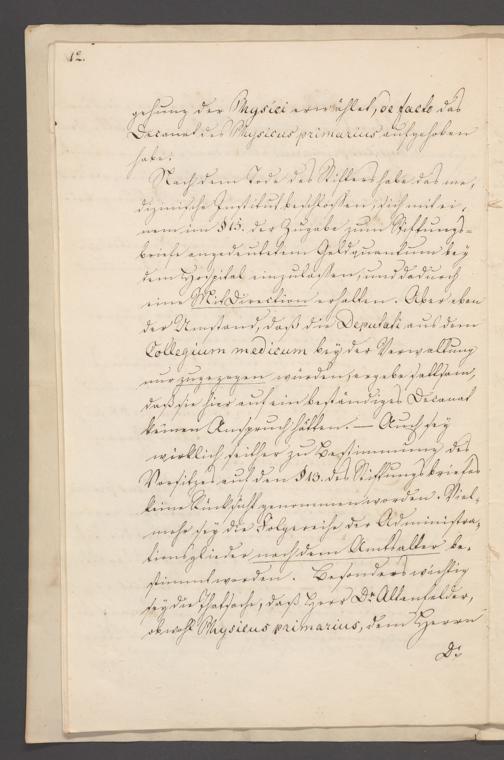 12.
gehung der Physici erwählet, de facto das
Decanat des Physicus primarius aufgehoben
habe.
Nach dem Tode des Stifters habe das me,
dizinische Institut beschlossen, sich mit ei,
nem im §15. der Zugabe zum Stiftungs-
briefe angedeuteten Geldquantum bey
dem Hospital einzulassen, und dadurch
eine MitDirection erhalten. Aber eben
der Umstand, daß die Deputati aus dem
Collegium medicum bey der Verwaltung
nur zugezogen würden, ergebe sattsam,
daß sie hier auf ein beständiges Decanat
keinen Anspruch hätten. — Auch sey
wirklich seither zu Bestimmung des
Vorsitzes auf den §13. des Stiftungsbriefes
keine Rücksicht genommen worden. Viel-
mehr sey die Folgereihe der Administra,
tionsglieder nach dem Amtsalter be,
stimmt worden. Besonders wichtig
sey die Thatsache, daß Herr Dr. Altenfelder,
obwohl Physicus primarius, dem Herrn
Dr.